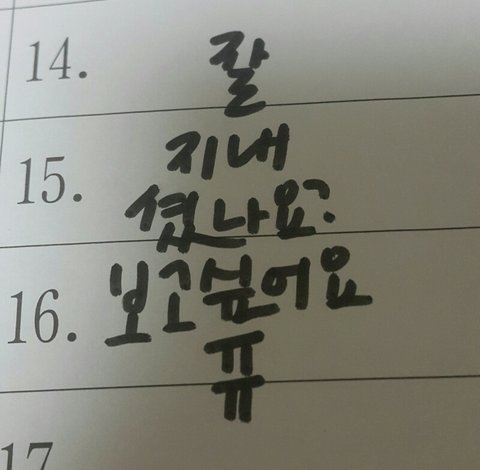 14. 잘
15. 지내
셨나요?
16. 보고싶어요
ㅠ
ㅠ
17